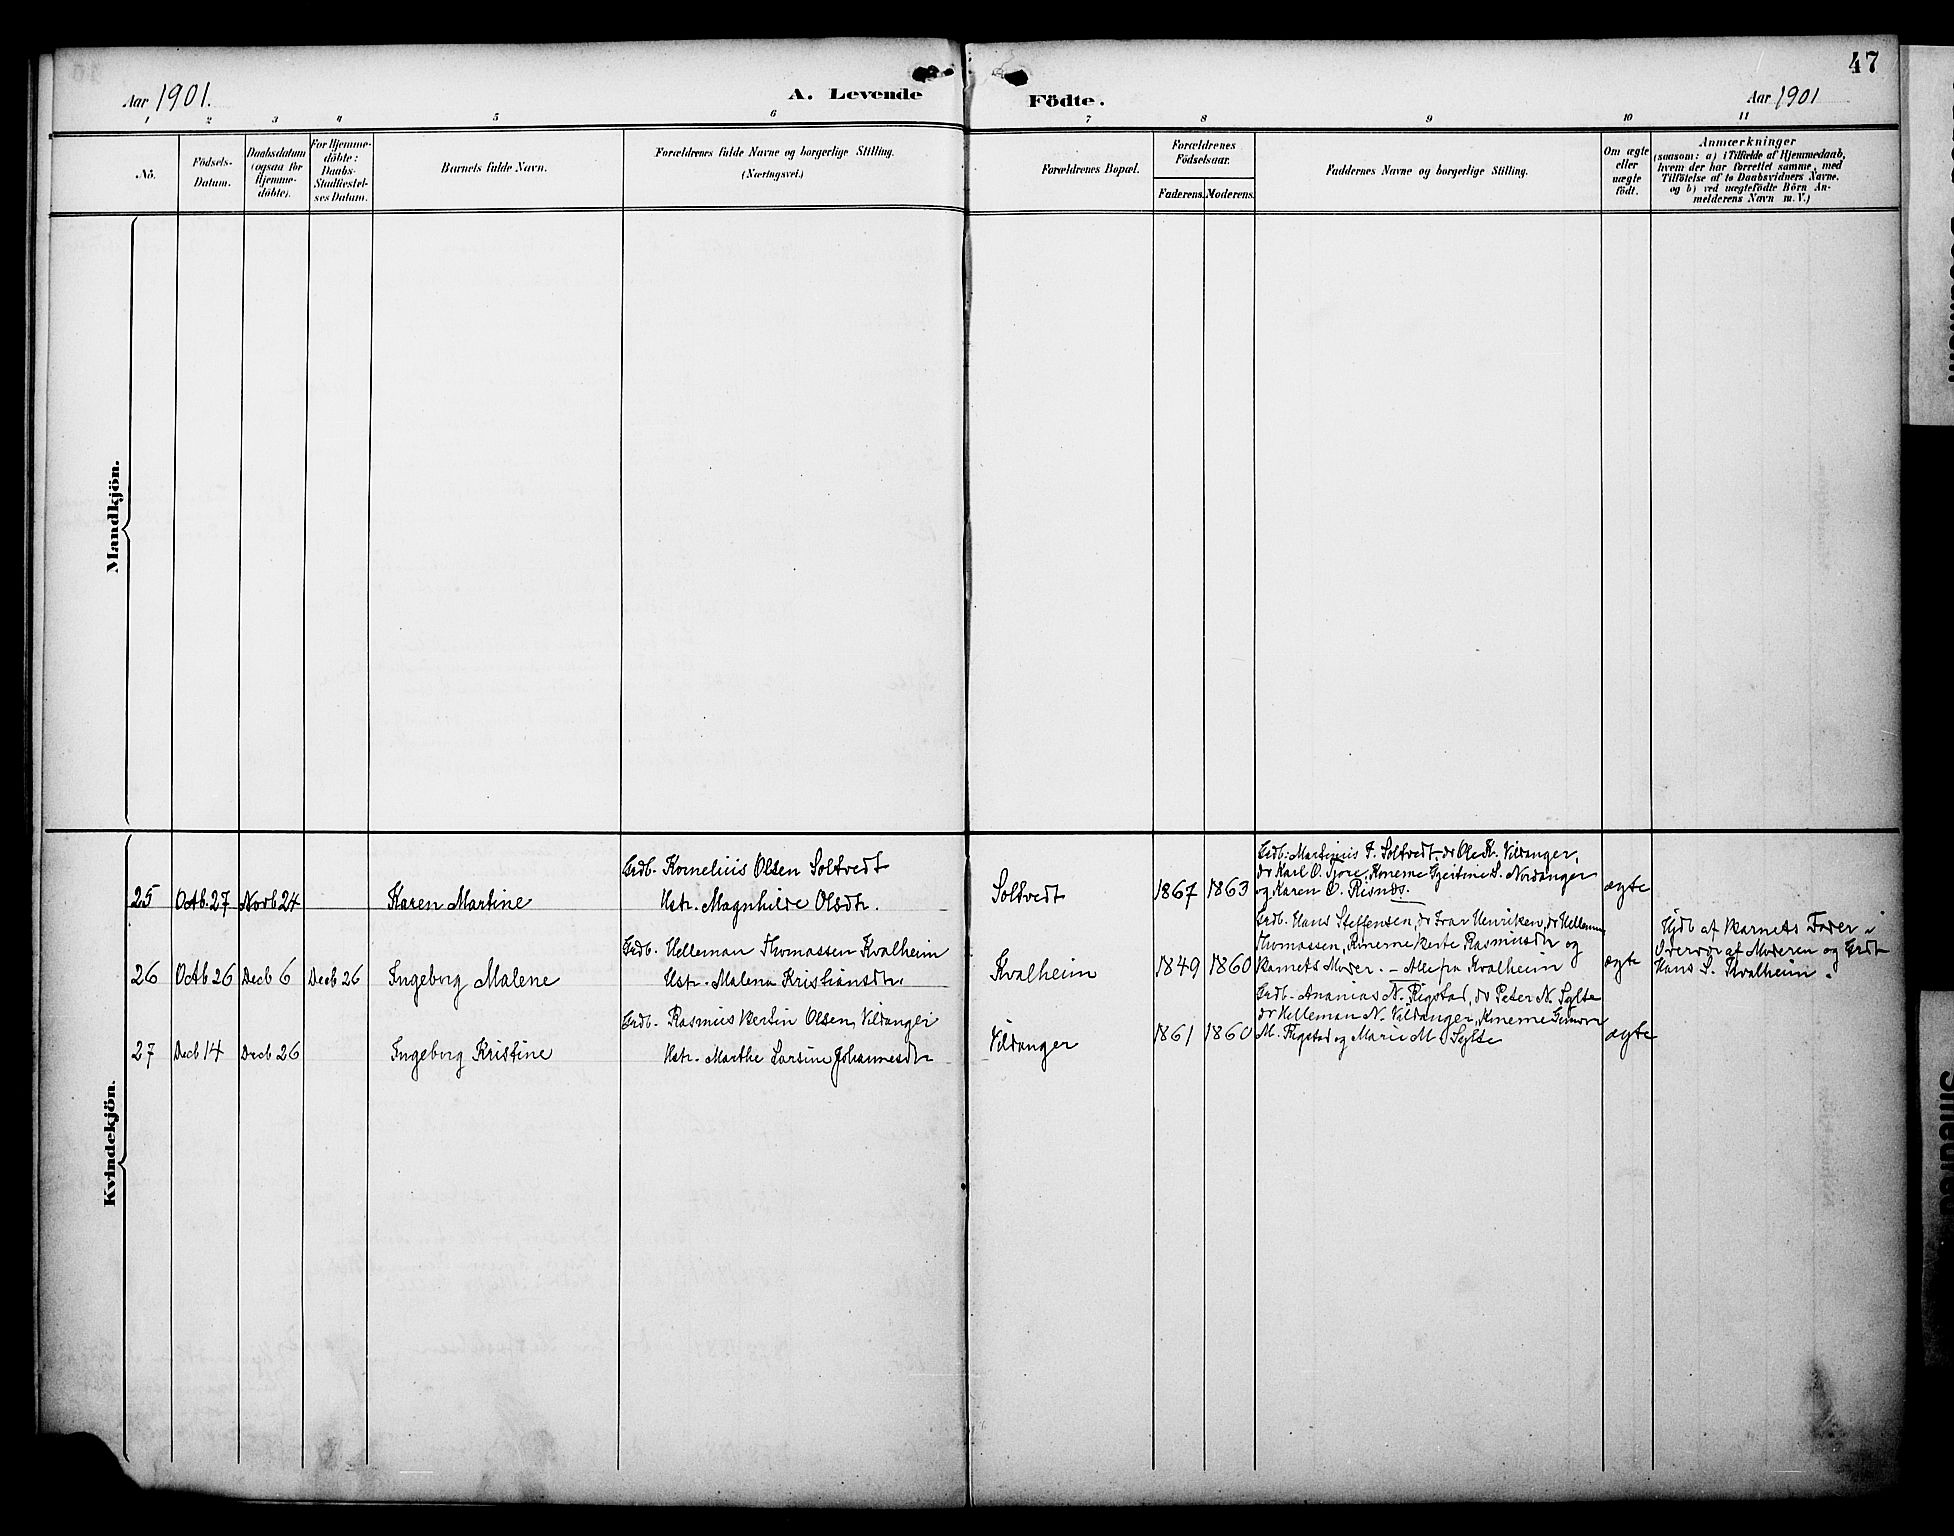 47
Aar 1901.
A. Levende Födte.
Aar 1901
1 2 3 4 5 6 7 8 9 10 11
Nö.
Födsels-
Datum.
Daabsdatum
(ogsaa for
Hjemme-
döbte).
For Hjemme-
döbte:
Daabs-
Stadfæstel-
ses Datum.
Barnets fulde Navn.
Forældrenes fulde Navne og borgerlige Stilling.
(Næringsvei.)
Forældrenes Bopæl.
Forældrenes
Födselsaar.
Faderens. Moderens.
Faddernes Navne og borgerlige Stilling.
Om ægte
eller
uægte
födt.
Anmærkninger
(saasom: a) i Tilfælde af Hjemmedaab,
hvem der har forrettet samme, med
Tilföielse af to Daabsvidners Navne,
og b) ved uægtefödte Börn An-
melderens Navn m. V.)
Mandkjön.
Kvindekjön.
25 Octb. 27 Novb 24
Karen Martine
Grdb. Kornelius Olsen Soltvedt
Hstr. Magnhilde Olsdtr.
Soltvedt
1867 1863
Grdb. Martinius T. Soltvedt, do Ole K. Vildanger,
do Karl O. Tjore, Konerne Gjertine S. Nordanger
og Karen O. Risnes.
ægte
26 Octb 26 Decb 6 Decb 26
Ingeborg Malene
Grdb. Helleman Thomassen Kvalheim
Hstr. Malena Kristiansdtr.
Kvalheim
1849 1860
Grdb. Hans Steffensen, do Ivar Henriksen, do Helleman
Thomassen, Konerne Berte Rasmusdtr og
Barnets Moder. – Alle fra Kvalheim
ægte
Hjdb af Barnets Fader i
Overvær af Moderen og Grdb
Hans S. Kvalheim.
27 Decb 14 Decb 26
Ingeborg Kristine
Grdb. Rasmus Bertin Olsen Vildanger
Hstr. Marthe Larsine Johannesdtr
Vildanger
1861 1860
Grdb. Ananias N. Rigstad, do Peter N. Sylte
do Helleman N. Vildanger, Konerne
M. Rigstad og Marie M. Sylte
ægte